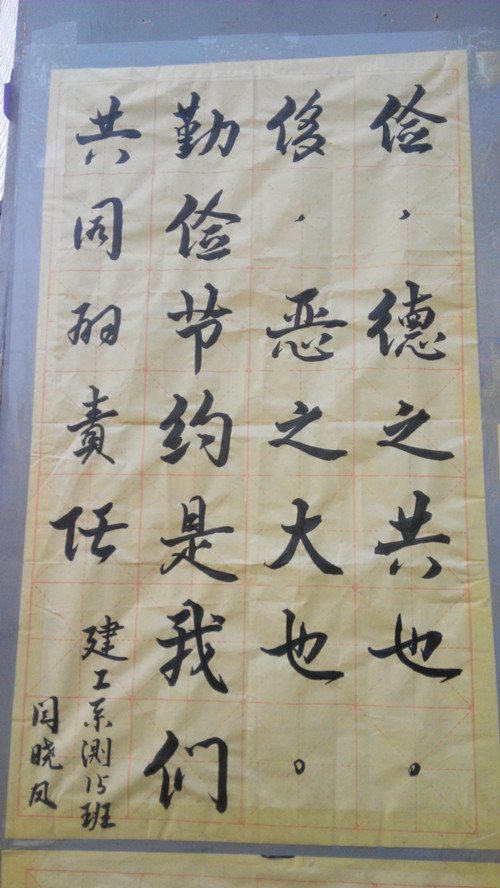 俭，德之共也。
侈，恶之大也。
勤俭节约是我们
共同的责任
建工系测15班
闫晓凤